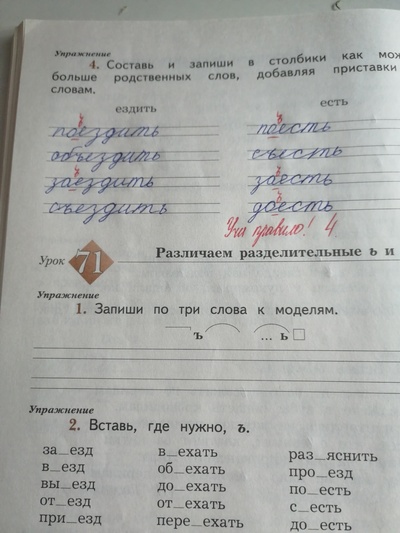 Упражнение
4. Составь и запиши в столбики как мож
больше родственных слов, добавляя приставки
словам.
ездить есть
ъ ъ
поездить поесть
объездить съесть
ъ ъ
заездить заесть
ъ
съездить доесть
Учи правило! 4
Урок 71 Различаем разделительные ь и
Упражнение
1. Запиши по три слова к моделям.
ъ ... ь
Упражнение
2. Вставь, где нужно, ъ.
за_езд в_ехать раз_яснить
в_езд об_ехать про_езд
вы_езд до_ехать по_есть
от_езд от_ехать с_есть
при_езд пере_ехать до_есть